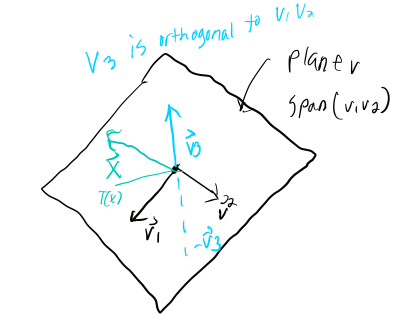 V3 is orthogonal to v₁ v₂
plane v
span(v₁v₂)
v⃗3
x⃗
T(x)
v⃗2
v⃗₁
-v⃗3